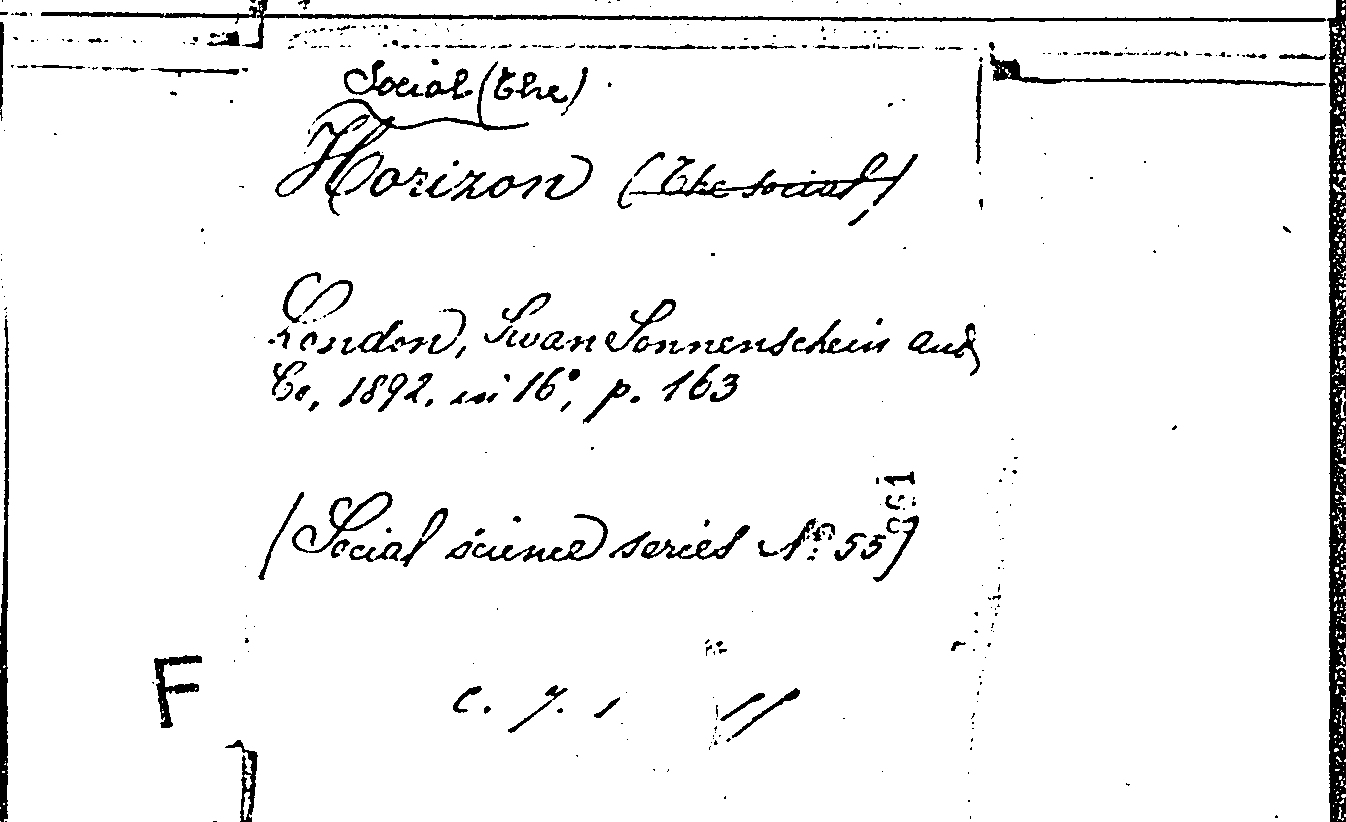 Social (The)
Horizon (The social)
London, Swan Sonnenschein and
Co, 1892. in 16°, p. 163
(Social science series N° 55)
F